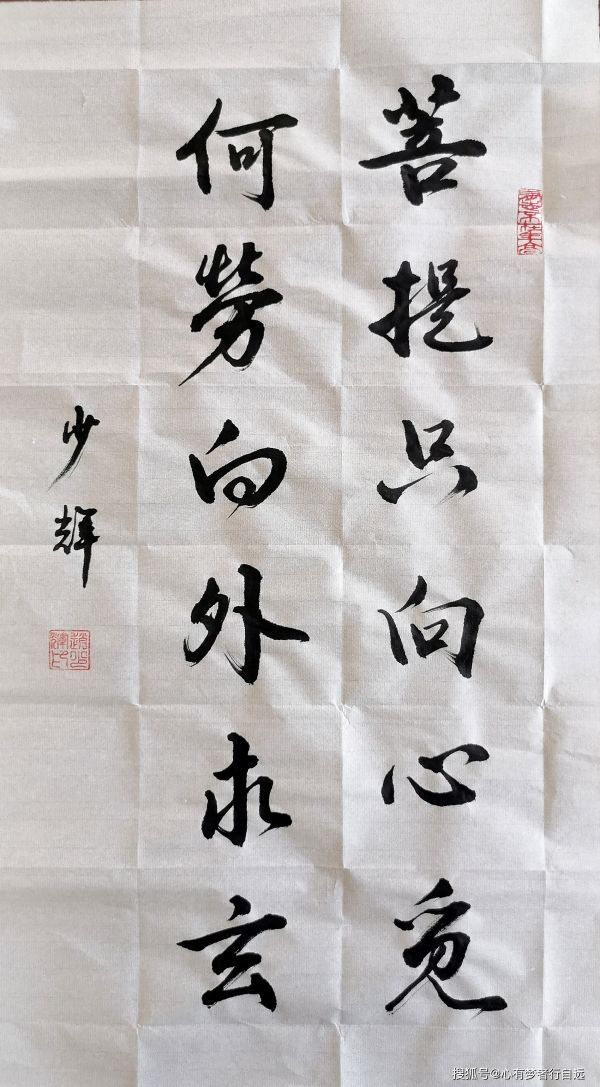 菩提只向心觅
何勞向外求玄
少輝
搜狐号@心有梦者行自远